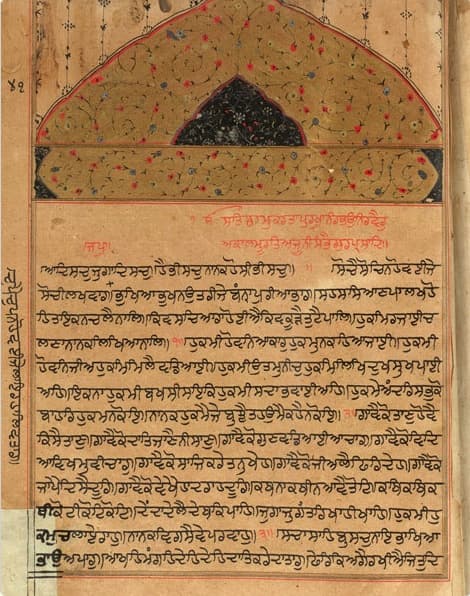 ੴ ਸਤਿਨਾਮੁਕਰਤਾਪੁਰਖੁਨਿਰਭਉਨਿਰਵੈਰੁ
ਅਕਾਲਮੂਰਤਿਅਜੂਨੀਸੈਭੰਗੁਰਪ੍ਰਸਾਦਿ॥
ਜਪੁ॥
ਆਦਿਸਚੁਜੁਗਾਦਿਸਚੁ॥ਹੈਭੀਸਚੁਨਾਨਕਹੋਸੀਭੀਸਚੁ॥੧॥ਸੋਚੈਸੋਚਿਨਹੋਵਈਜੇ
ਸੋਚੀਲਖਵਾਰ॥ਭੁਖਿਆਭੁਖਨਉਤਰੀਜੇਬੰਨਾਪੁਰੀਆਭਾਰ॥ਸਹਸਸਿਆਣਪਾਲਖਹੋ
ਹਿਤਇਕਨਚਲੈਨਾਲਿ॥ਕਿਵਸਚਿਆਰਾਹੋਈਐਕਿਵਕੂੜੈਤੁਟੈਪਾਲਿ॥ਹੁਕਮਿਰਜਾਈਚ
ਲਣਾਨਾਨਕਲਿਖਿਆਨਾਲਿ॥੧॥ਹੁਕਮੀਹੋਵਨਿਆਕਾਰਹੁਕਮੁਨਕਹਿਆਜਾਈ॥ਹੁਕਮੀ
ਹੋਵਨਿਜੀਅਹੁਕਮਿਮਿਲੈਵਡਿਆਈ॥ਹੁਕਮੀਉਤਮੁਨੀਚੁਹੁਕਮਿਲਿਖਿਦੁਖਸੁਖਪਾਈ
ਅਹਿ॥ਇਕਨਾਹੁਕਮੀਬਖਸੀਸਇਕਿਹੁਕਮੀਸਦਾਭਵਾਈਅਹਿ॥ਹੁਕਮੈਅੰਦਰਿਸਭੁਕੋ
ਬਾਹਰਿਹੁਕਮਨਕੋਇ॥ਨਾਨਕਹੁਕਮੈਜੇਬੁਝੈਤਹਉਮੈਕਹੈਨਕੋਇ॥੨॥ਗਾਵੈਕੋਤਾਣੁਹੋਵੈ
ਕਿਸੈਤਾਣੁ॥ਗਾਵੈਕੋਦਾਤਿਜਾਣੈਨੀਸਾਣੁ॥ਗਾਵੈਕੋਗੁਣਵਡਿਆਈਆਚਾਰ॥ਗਾਵੈਕੋਵਿਦਿ
ਆਵਿਖਮੁਵੀਚਾਰੁ॥ਗਾਵੈਕੋਸਾਜਿਕਰੇਤਨੁਖੇਹ॥ਗਾਵੈਕੋਜੀਅਲੈਫਿਰਿਦੇਹ॥ਗਾਵੈਕੋ
ਜਾਪੈਦਿਸੈਦੂਰਿ॥ਗਾਵੈਕੋਵੇਖੈਹਾਦਰਾਹਦੂਰਿ॥ਕਥਨਾਕਥੀਨਆਵੈਤੋਟਿ॥ਕਥਿਕਥਿਕ
ਥੀਕੋਟੀਕੋਟਿਕੋਟਿ॥ਦੇਂਦਾਦੇਲੈਦੇਥਕਿਪਾਹਿ॥ਜੁਗਾਜੁਗੰਤਰਿਖਾਹੀਖਾਹਿ॥ਹੁਕਮੀਹੁ
ਕਮੁਚਲਾਏਰਾਹੁ॥ਨਾਨਕਵਿਗਸੈਵੇਪਰਵਾਹੁ॥੩॥ਸਾਚਾਸਾਹਿਬੁਸਾਚੁਨਾਇਭਾਖਿਆ
ਭਾਉਅਪਾਰੁ॥ਆਖਹਿਮੰਗਹਿਦੇਹਿਦੇਹਿਦਾਤਿਕਰੇਦਾਤਾਰੁ॥ਫੇਰਿਕਿਅਗੈਰਖੀਐਜਿਤੁਦਿ